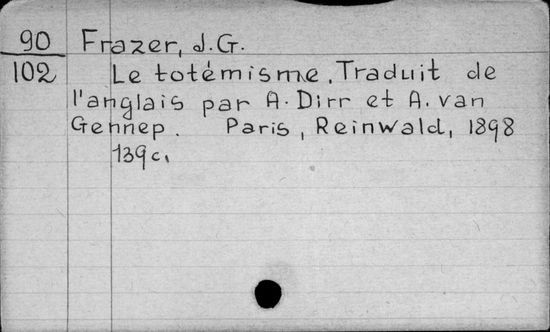 90 Frazer, J.G.
102 Le totémisme. Traduit de
l'anglais par A. Dirr et A. van
Gennep. Paris, Reinwald, 1898
139c.